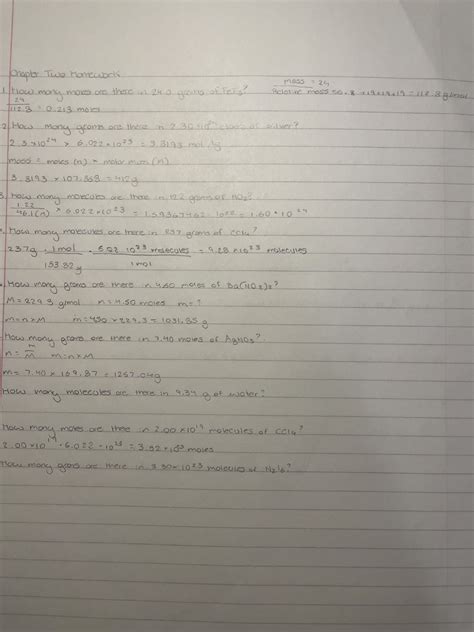 Chapter Two Homework
mass = 24
1. How many moles are there in 24.0 grams of FeF3? Relative mass 55.8 +19+19+19 = 112.8 g/mol
24
112.8 = 0.213 moles
2. How many grams are there in 2.30×10²⁴ of silver?
2.3×10²⁴ × 6.022×10²³ = 3.8193 mol Ag
moles (n) × molar mass (m)
3.8193 × 107.868 = 412g
3. How many molecules are there in 122 grams of NO2?
1.22
46.1(n) × 6.022×10²³ = 1.60 × 10²⁴
How many molecules are there in 237 grams of CCl4?
237g . 1mol . 6.02 10²³ molecules = 9.28 ×10²³ molecules
153.82g 1mol
How many grams are there in 4.50 moles of Ba(NO2)2?
M= 229.3 g/mol n= 4.50 moles m= ?
m=n×M m= 450 × 229.3 = 1031.85g
How many grams are there in 7.40 moles of AgNO3?
n= m/M m=n·M
m= 7.40 × 169.87 = 1257.04g
How many molecules are there in 9.34 g of water?
How many moles are there in 2.00×10¹⁹ molecules of CCl4?
2.00×10¹⁹ ÷ 6.022 ×10²³ = 3.32 × moles
How many grams are there in 3.30×10²³ molecules of N2I6?